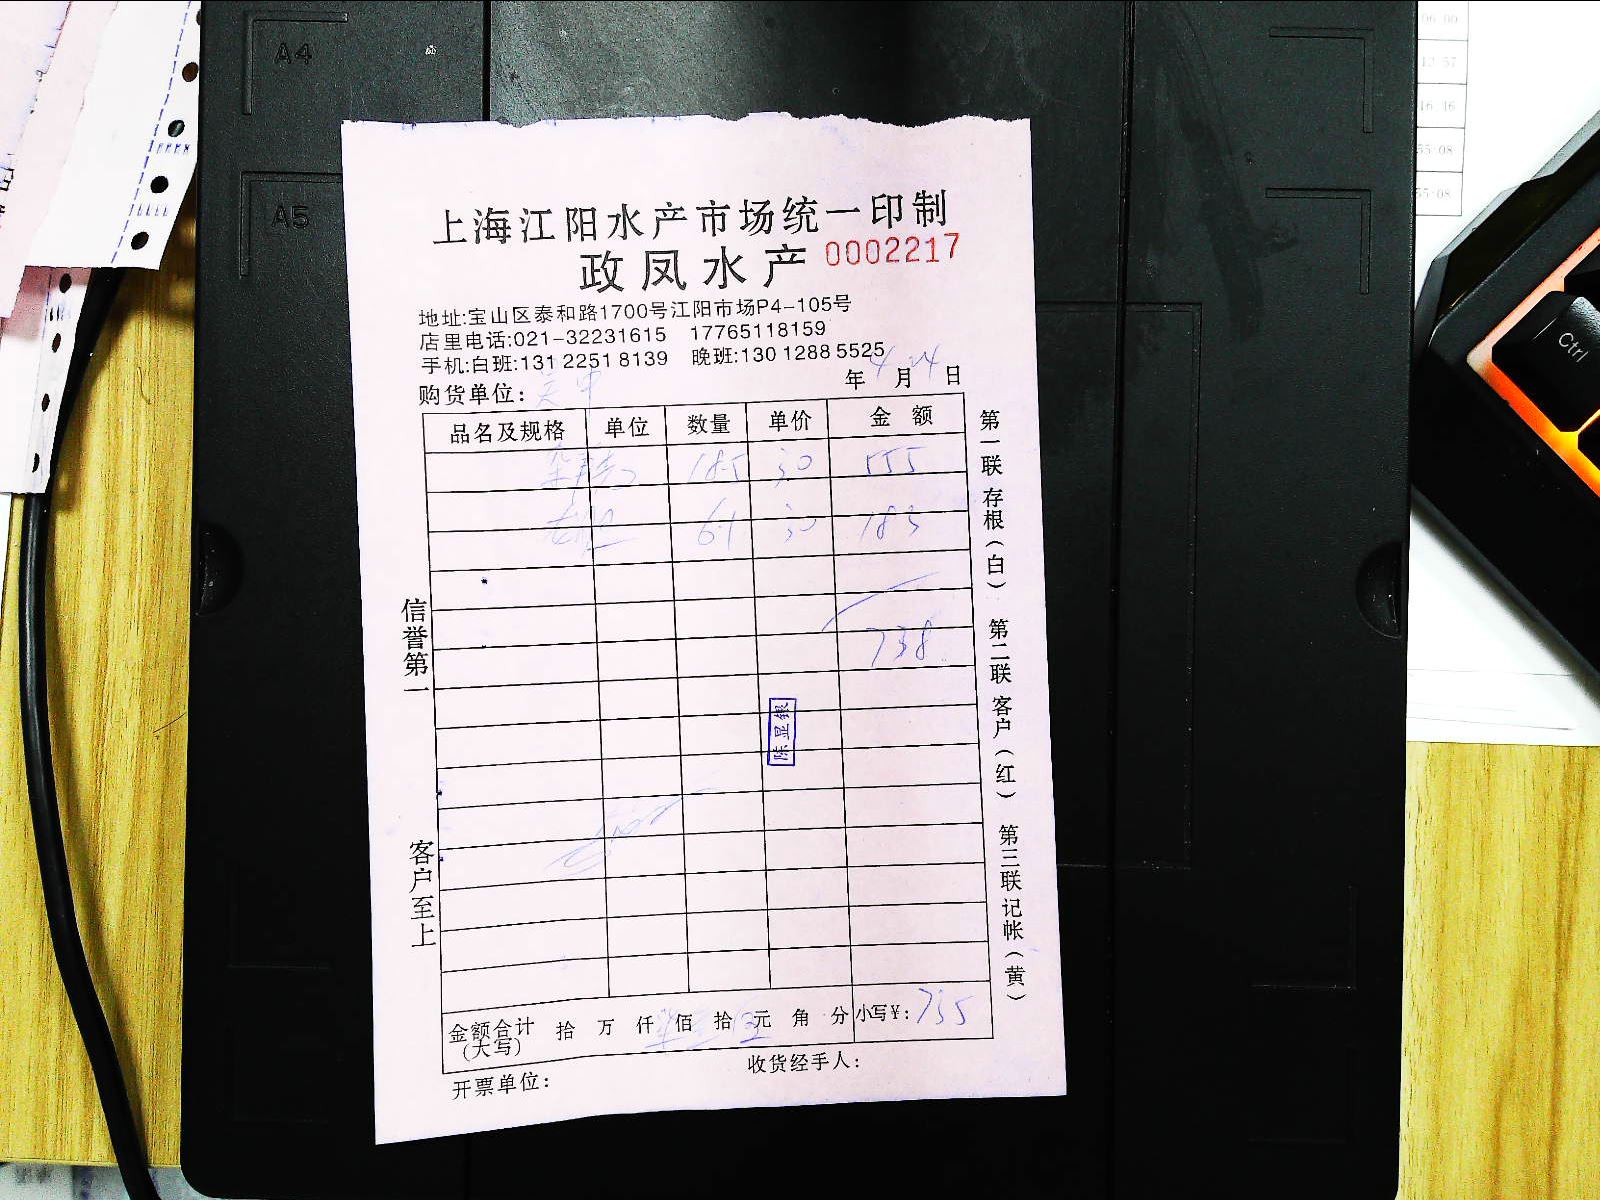 A4
A5
上海江阳水产市场统一印制
政凤水产 0002217
地址:宝山区泰和路1700号江阳市场P4-105号
店里电话:021-32231615 17765118159
手机:白班:131 2251 8139 晚班:130 1288 5525
购货单位: 年 4 月 24 日
品名及规格 单位 数量 单价 金额
18.5 30 555
6.1 30 183
738
陈显银
信誉第一
客户至上
第一联存根(白) 第二联客户(红) 第三联记帐(黄)
金额合计(大写) 拾 万 仟 佰 拾 元 角 分 小写¥: 735
开票单位: 收货经手人:
Ctrl